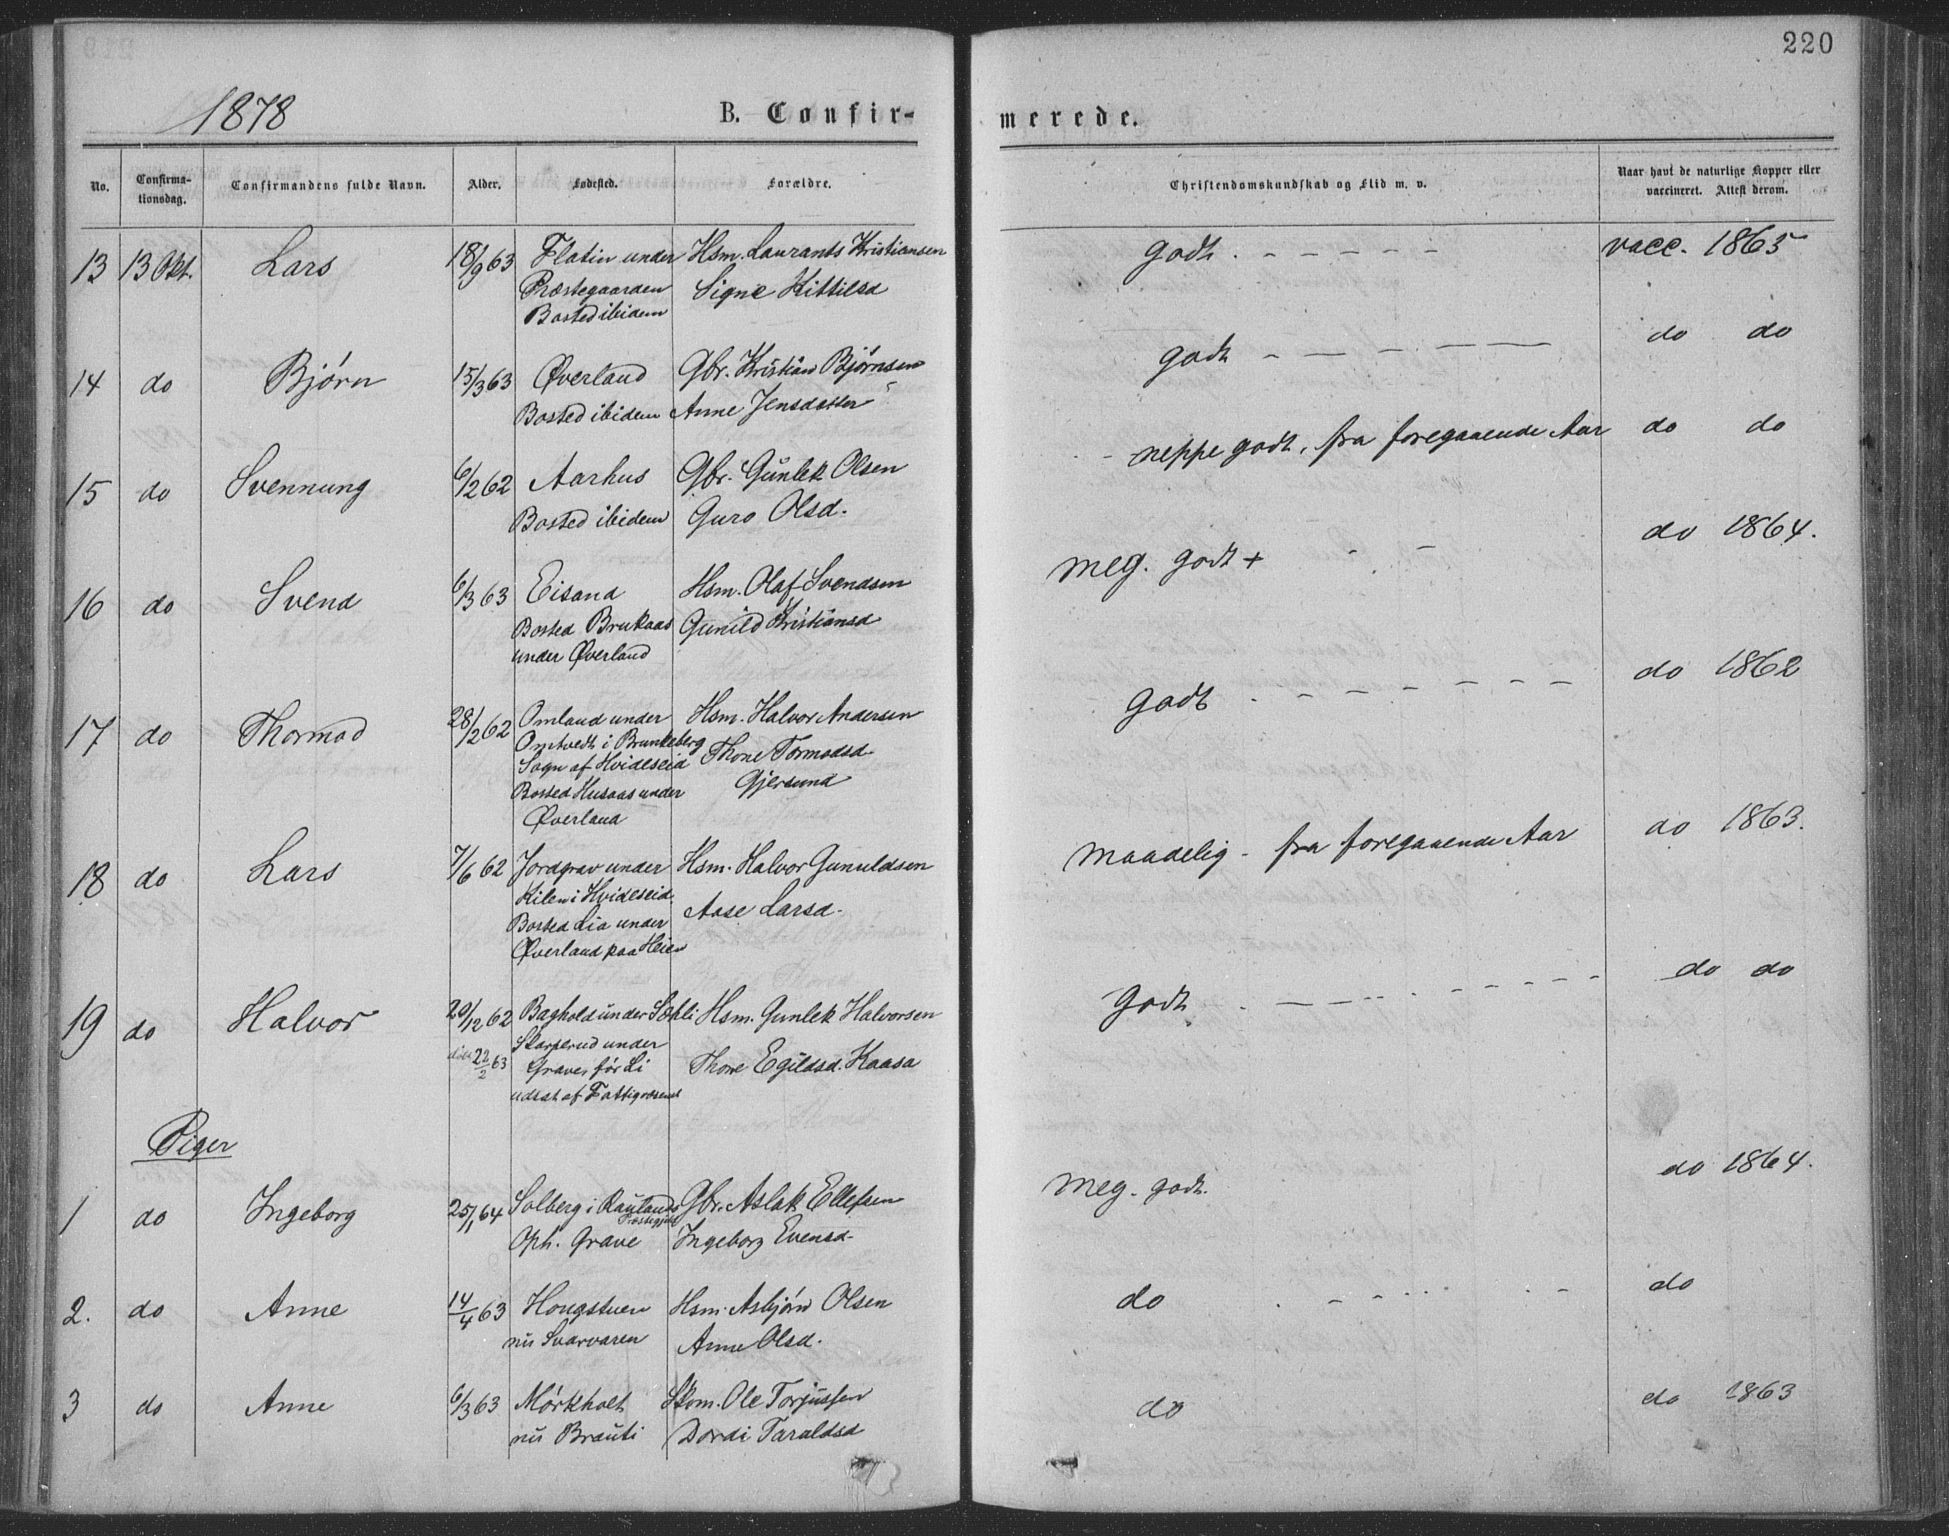 220
1878
B. Confir-
merede.
No.
Confirma-
tionsdag.
Confirmandens fulde Navn.
Alder.
Fødested.
Forældre.
Christendomskundskab og Flid m. v.
Naar havt de naturlige Kopper eller
vaccineret. Attest derom.
13 13 Okt. Lars 18/9 63 Flatin under Hsm. Laurants Kristiansen godt. - - - - - vacc. 1865
Præstegaarden Signe Kittilsd
Bosted ibidem
14 do Bjørn 15/3 63 Øverland Gbr. Kristian Bjørnsen godt - - - - - do do
Bosted ibidem Anne Jensdatter
15 do Svennung 6/2 62 Aarhus Gbr. Gunlek Olsen neppe godt, fra foregaaende Aar do do
Bosted ibidem Guro Olsd.
16 do Svend 6/3 63 Eisand Hsm. Olaf Svendsen meg. godt + - - do 1864.
Bosted Brukaas Gunild Kristiansd
under Øverland
17 do Thormod 28/2 62 Omland under Hsm. Halvor Andersen godt . - - - - - - - do 1862
Omtvedt i Brunkeberg Thone Tormodsd
Sogn af Hvideseid Gjersund
Bosted Husaas under
Øverland
18 do Lars 7/6 62 Jordgrav under Hsm. Halvor Gunuldsen maadelig - fra foregaaende Aar do 1863.
Kilen i Hvideseid Aase Larsd.
Bosted Lia under
Øverland paa Heien
19 do Halvor 20/12 62 Baghold under Sækli Hsm. Gunlek Halvorsen godt . - - - - - - - do do
22/2 63 Skarperud under Thone Egildsd. Kaasa
Graves før Li
udsat af Fattigvæsenet
Piger
1 do Ingeborg 25/1 64 Solberg i Raulands Gbr. Aslak Ellefsen meg. godt. do 1864.
Præstegjeld
Oph. Grave Ingeborg Evensd.
2. do Anne 14/4 63 Hougstuen Hsm. Asbjørn Olsen do . - - - - - do
nu Svarvaren Anne Olsd.
3 do Anne 6/3 63 Mørkholt Skom. Ole Torjussen do do 1863
nu Brauti Dordi Taraldsd